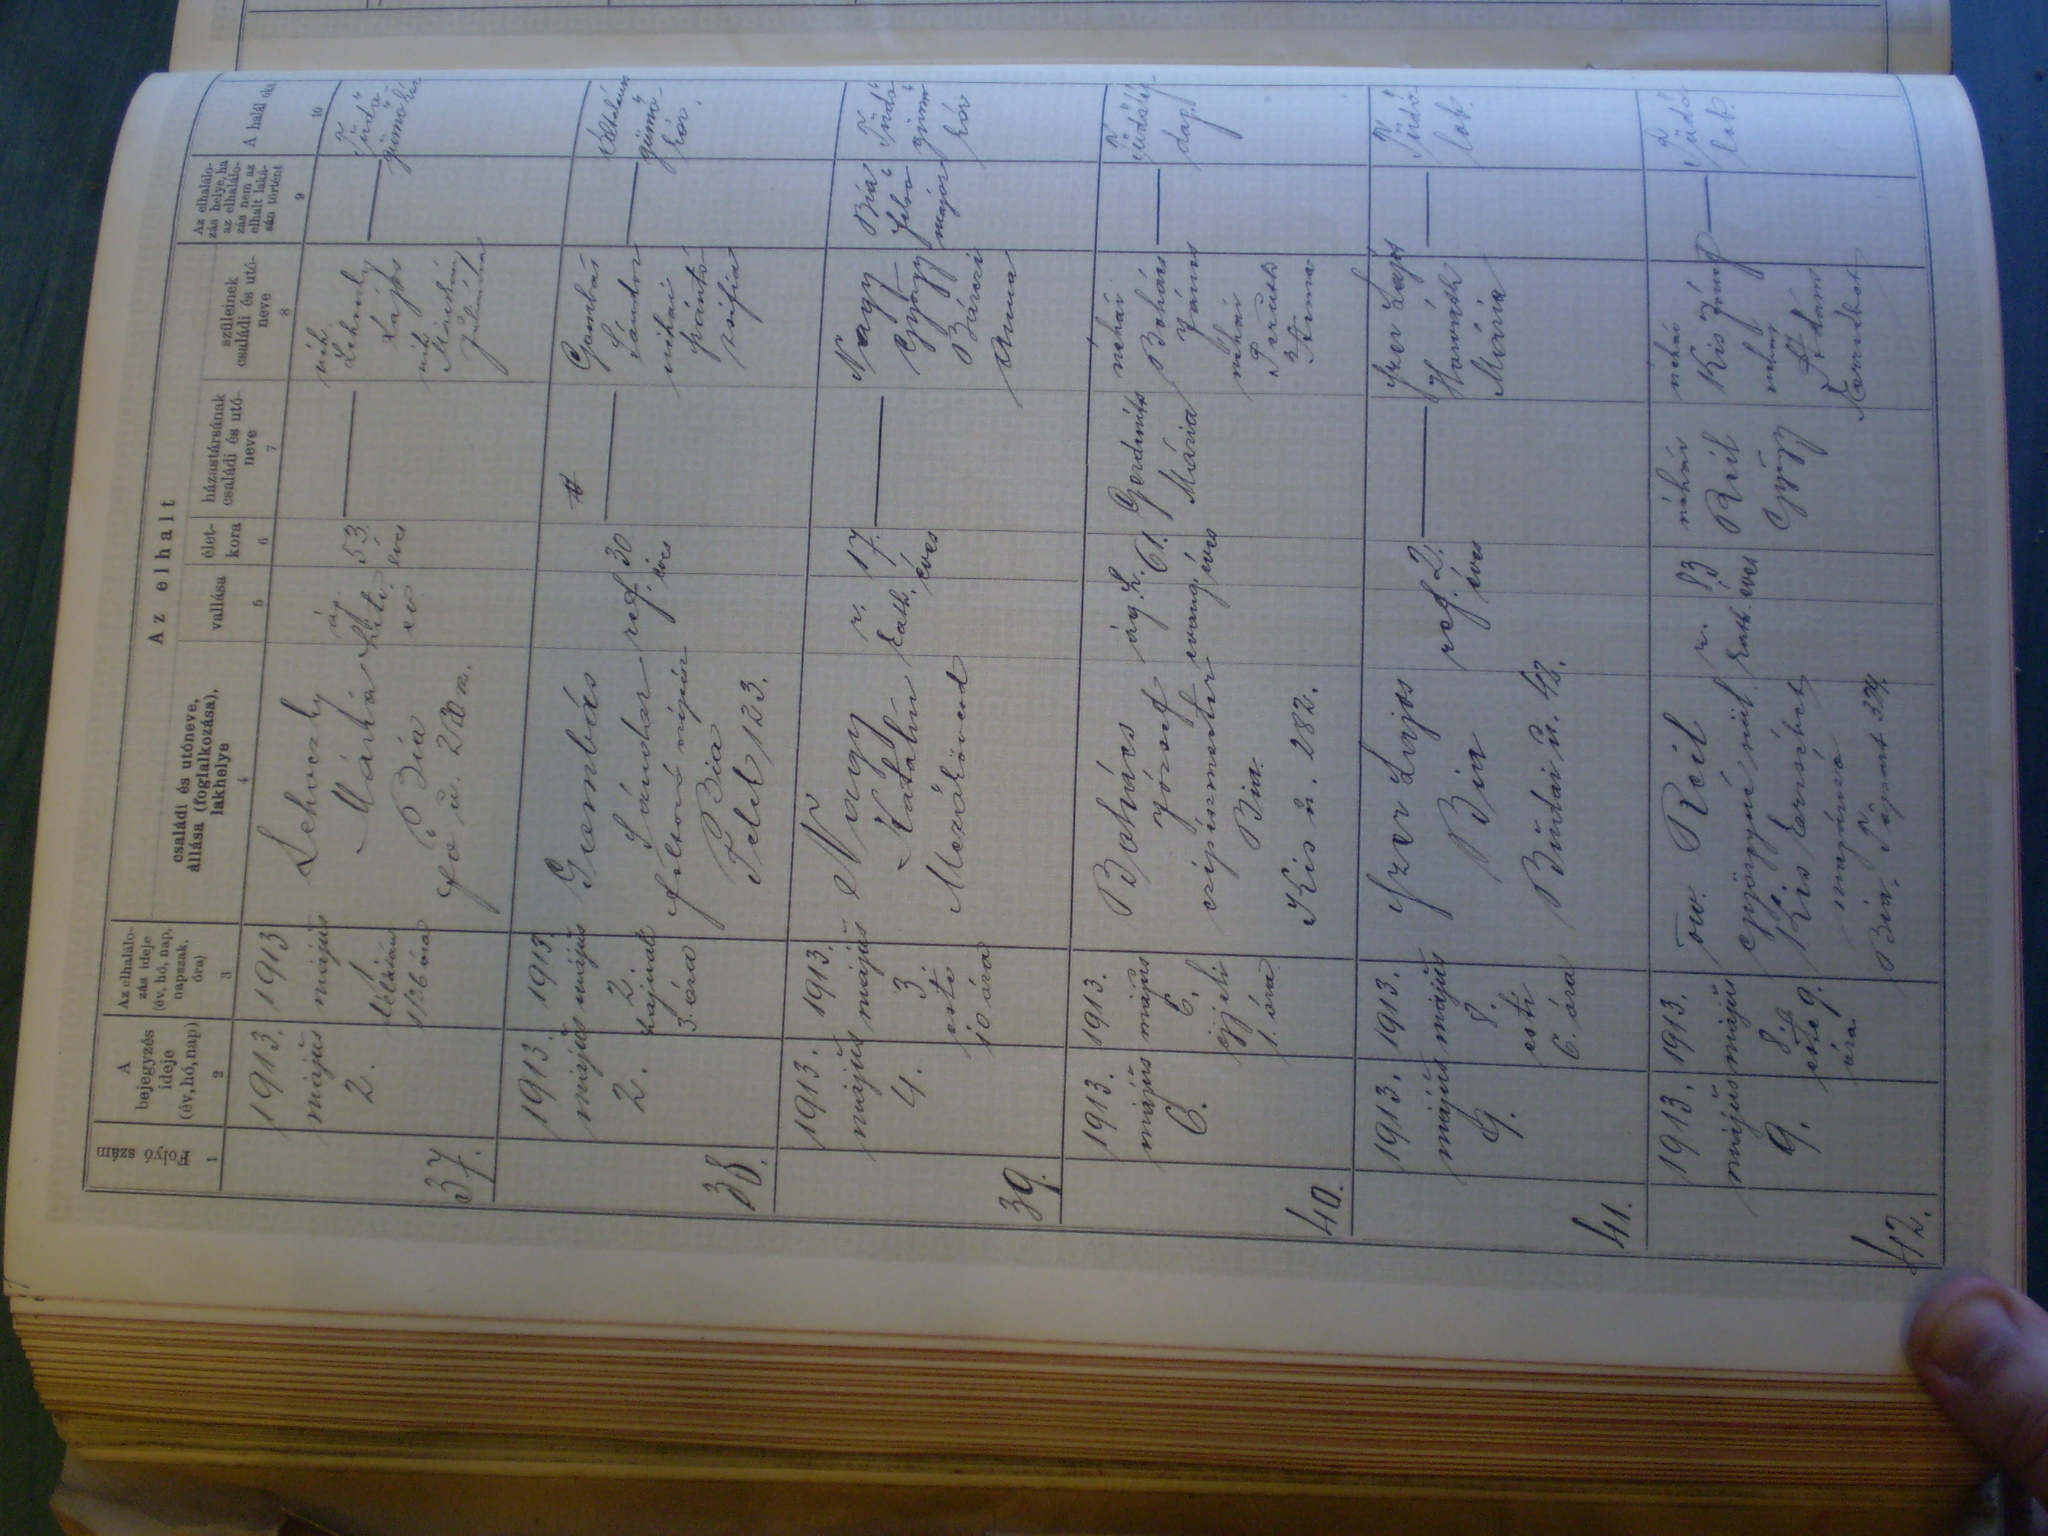 Az elhalt
Folyó szám
A
bejegyzés
ideje
(év, hó, nap)
Az elhalálo-
zás ideje
(év, hó, nap,
napszak,
óra)
családi és utóneve,
állása (foglalkozása),
lakhelye
vallása
élet-
kora
házastársának
családi és utó-
neve
szüleinek
családi és utó-
neve
Az elhalálo-
zás helye, ha
az elhalálo-
zás nem az
elhalt laká-
sán történt
A halál oka
1
2
3
4
5
6
7
8
9
10
37.
1913.
május
2.
1913
május
1
délután
1/26 óra
Lehoczky
Márha
Bia
Fő u. 210 sz.
ág.
ev.
53.
éves
néh.
Lehoczky
Lajos
néh.
Tüdő
gümőkór
38.
1913.
május
2.
1913.
május
2.
hajnali
3. óra
Gombás
Sándor
Bia
Telek 123.
ref.
30
éves
Gombás
Sándor
néhai
Pántó
Zsófia
Általános
gümő-
kór.
39.
1913.
május
4.
1913.
május
3
esti
10 óra
Nagy
Katalin
Mezőkövesd
r.
kath.
17.
éves
Nagy
György
Bárczi
Anna
Bia
felső
major
Tüdő
gümő
kór
40.
1913.
május
6.
1913.
május
6.
éjjeli
1. óra
Bohács
József
czipészmester
Bia.
Kis u. 282.
ág. h.
evang.
61.
éves
Mária
néhai
Bohács
János
néhai
Anna
Tüdőlég-
dag.
41.
1913.
május
9.
1913.
május
8.
esti
6. óra
Izer Lajos
Bia
Budai u. 43.
ref.
2.
éves
Izer Lajos
Horváth
Mária
Tüdő
lob.
42.
1913.
május
9.
1913.
május
8.
este 9.
óra
özv. Reil
Györgyné szül.
Kis Erzsébet
napszámos
r.
kath.
83
éves
néhai
Reil
György
néhai
Kis József
néhai
Ádám
Erzsébet
Tüdő
lob.